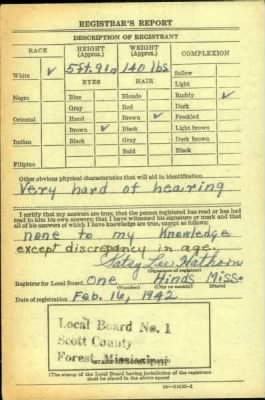 REGISTRAR'S REPORT
DESCRIPTION OF REGISTRANT
RACE
HEIGHT (Approx.)
WEIGHT (Approx.)
COMPLEXION
White ✓
5 ft. 9 in
140 lbs.
Sallow
Light
EYES
HAIR
Ruddy ✓
Negro
Blue
Blonde
Dark
Gray
Red
Freckled
Oriental
Hazel
Brown ✓
Light brown
Brown ✓
Black
Dark brown
Indian
Black
Gray
Black
Bald
Filipino
Other obvious physical characteristics that will aid in identification
Very hard of hearing
I certify that my answers are true; that the person registered has read or has had
read to him his own answers; that I have witnessed his signature or mark and that
all of his answers of which I have knowledge are true, except as follows:
none to my knowledge
except discrepancy in age.
Lee Hathorn
(Signature of registrar)
Registrar for Local Board One Hinds Miss.
(Number) (City or county) (State)
Date of registration Feb. 16, 1942
Local Board No. 1
Scott County
Forest, Mississippi
(The stamp of the Local Board having jurisdiction of the registrant
shall be placed in the above space)